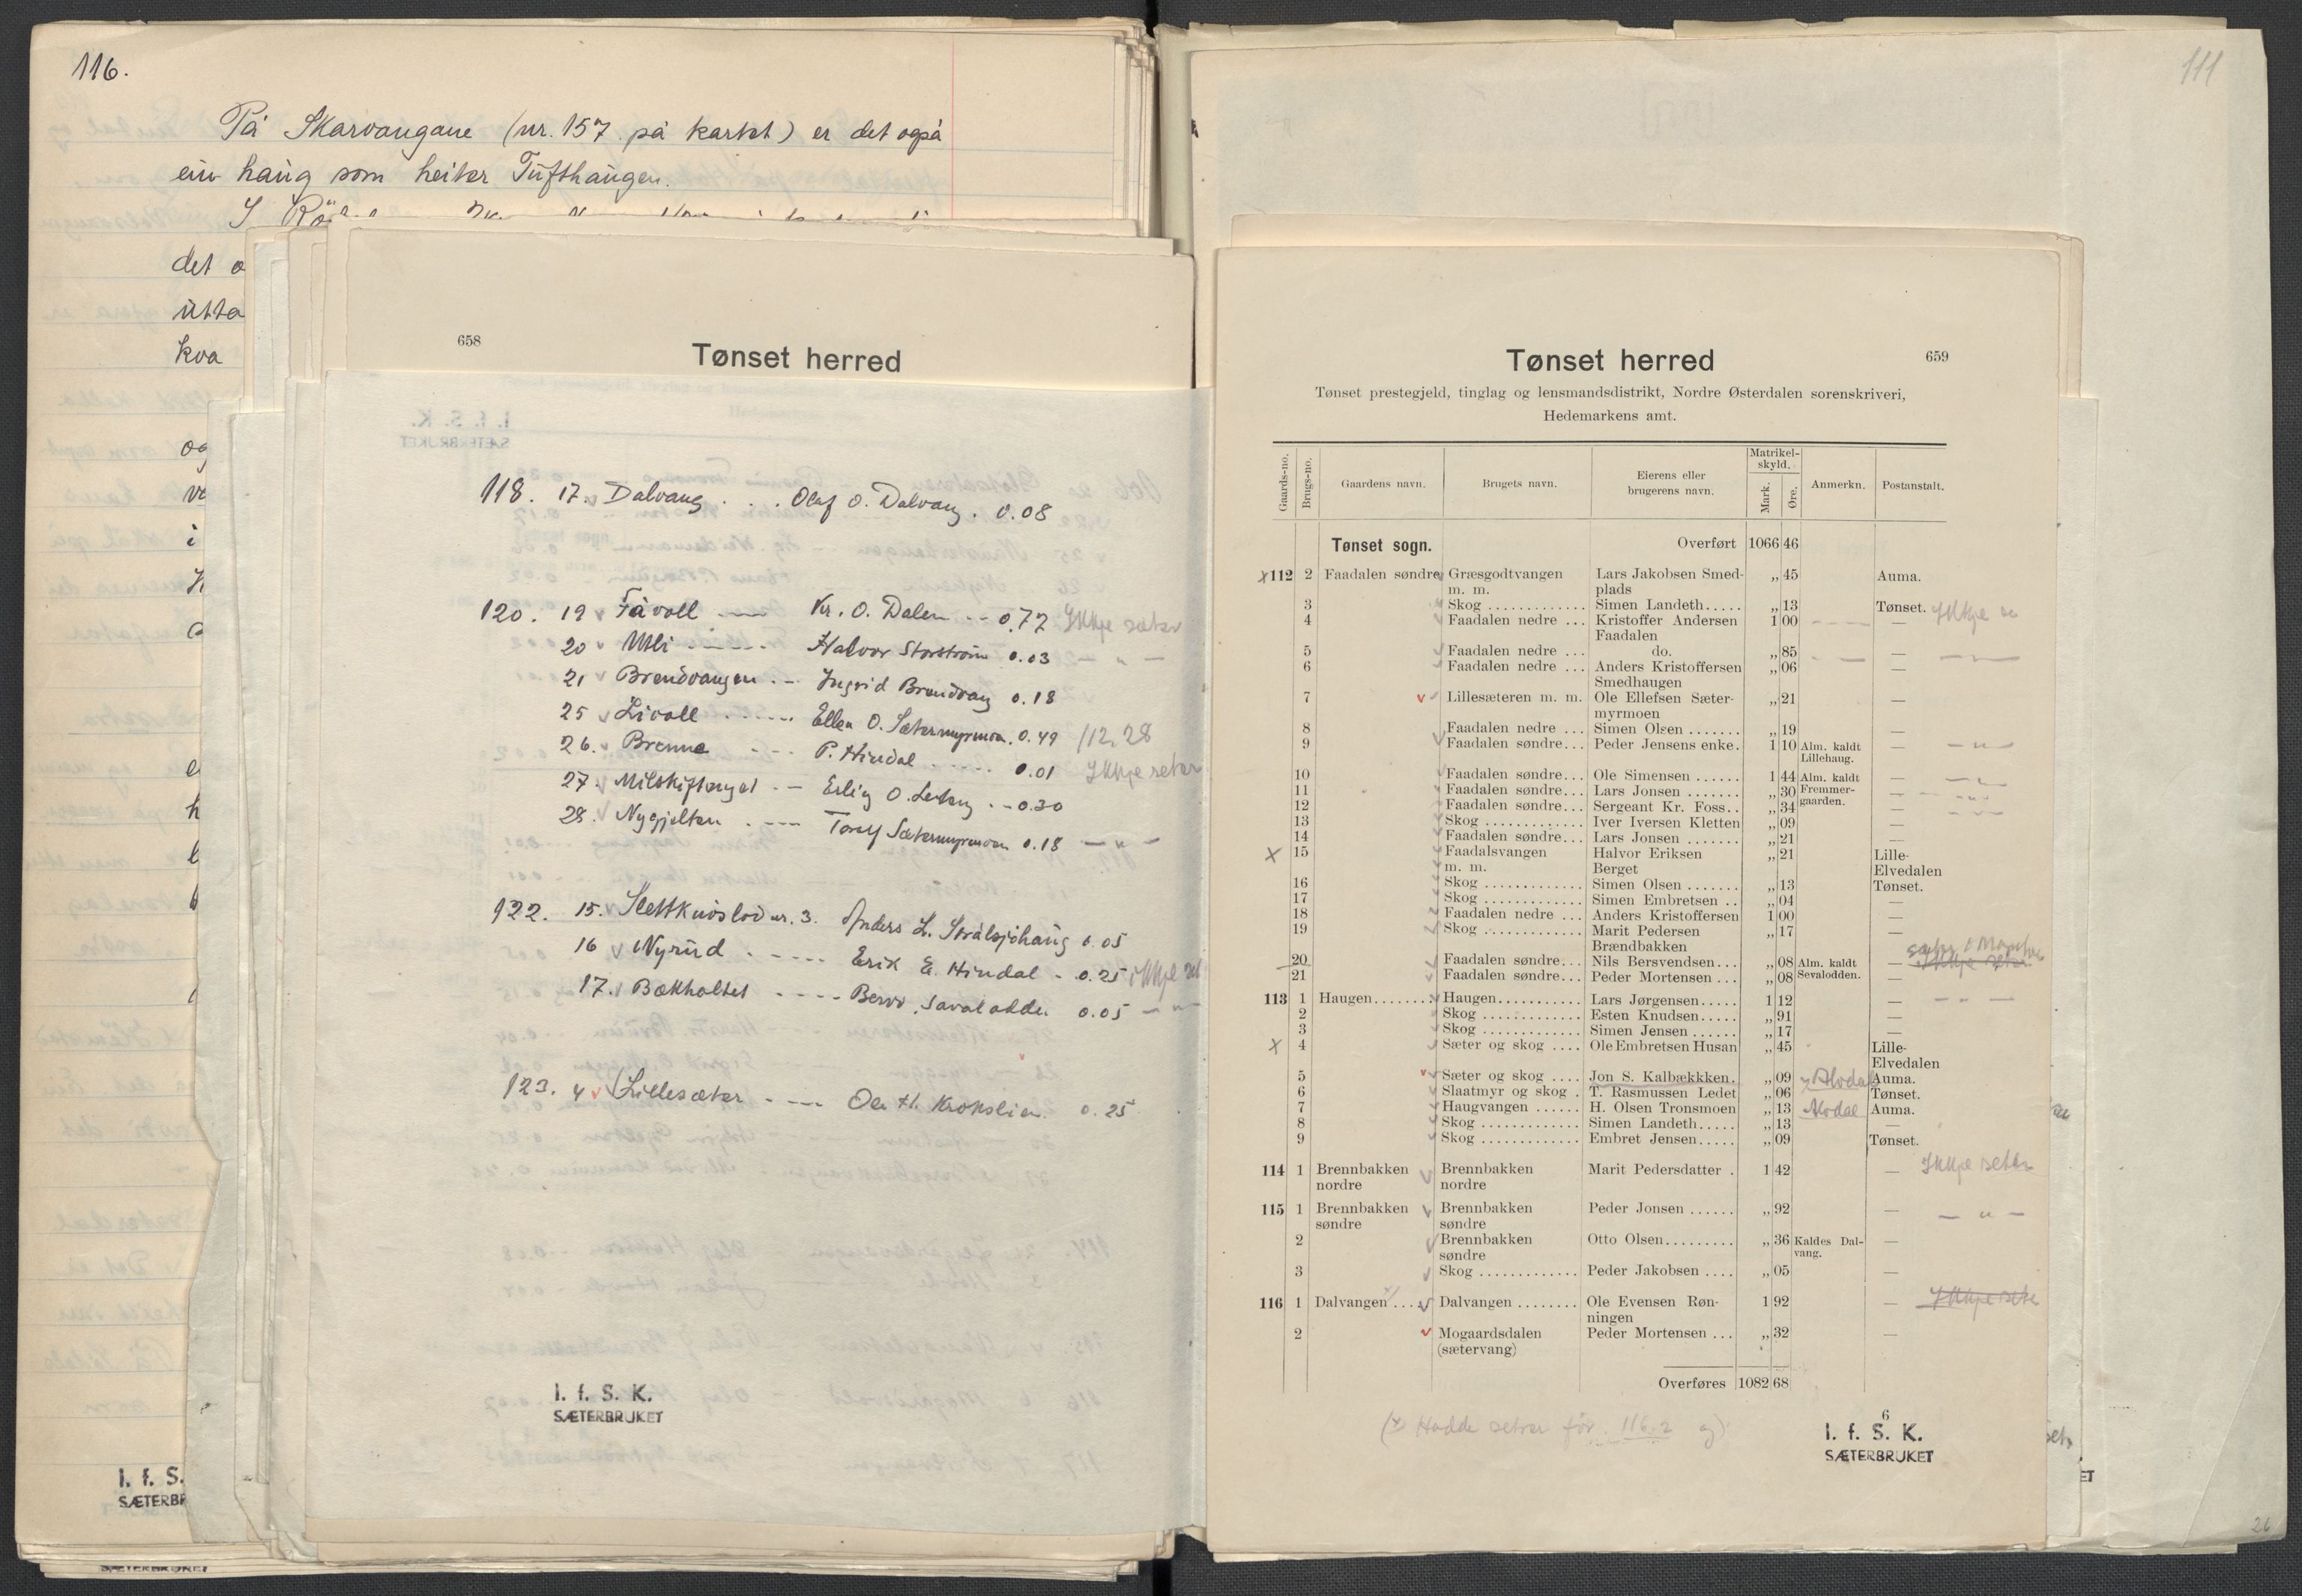 116.
På Skarvangane (nr. 157 på kartet) er det også
ein haug som heiter Tufthaugen.
det o
utta
kva
og
i
I. f. S.
SÆTERBR
658
Tønset herred
118. 17. Dalvang . . . Olaf O. Dalvang . 0.08
120. 19 Fåvoll — Kr. O. Dalen -- 0,72 Ikkje sæter
20 Utli - - - - - Halvor Storstrøm 0.03 — " —
21 Brendvangen . – Ingrid Brendvang 0.18
25 Livoll - - - - - Ellen O. Sætermyrmoen. 0.49 112, 28
26. Brenna - - - P. Hindal - - - - - 0.01 Ikkje seter
27. Milskiftenget . – Erling O. - - 0.30
28. Nygjelten . --- Toralf Sætermyrmoen 0.18 — " —
122. 15. Slettknøslod nr. 3. Anders L. Stråløjshaug 0.05
16 Nyrud . - - - - Erik E. Hindal - 0.25 ikkje set
17. Bækholtet - - - - Bersv. Savalodden 0.05 — " —
123. 4 Lillesæter - --- Ole H. Kroksli 0.25
I. f. S. K.
SÆTERBRUKET
111
Tønset herred
659
Tønset prestegjeld, tinglag og lensmandsdistrikt, Nordre Østerdalen sorenskriveri,
Hedemarkens amt.
Gaards-no. Brugs-no. Gaardens navn. Brugets navn. Eierens eller brugerens navn. Matrikel-skyld. Mark. Øre. Anmerkn. Postanstalt.
Tønset sogn. Overført 1066 46
x 112 2 Faadalen søndre Græsgodtvangen Lars Jakobsen Smed- „ 45 Auma.
m. m. plads
3 Skog ............. Simen Landeth..... „ 13 Tønset. Ikkje se
4 Faadalen nedre ... Kristoffer Andersen 1 00 —
Faadalen
5 Faadalen nedre ... do. „ 85 —
6 Faadalen nedre ... Anders Kristoffersen „ 06 —
Smedhaugen
7 Lillesæteren m. m. Ole Ellefsen Sæter- „ 21 —
myrmoen
8 Faadalen nedre ... Simen Olsen ....... „ 19 —
9 Faadalen søndre... Peder Jensens enke. 1 10 Alm. kaldt — — " —
Lillehaug.
10 Faadalen søndre... Ole Simensen ...... 1 44 Alm. kaldt — — " —
11 Faadalen søndre... Lars Jonsen ....... „ 30 Fremmer- — — " —
12 Faadalen søndre... Sergeant Kr. Foss.. „ 34 gaarden. — — " —
13 Skog ............. Iver Iversen Kletten „ 09 —
14 Faadalen søndre... Lars Jonsen ....... „ 21 —
x 15 Faadalsvangen Halvor Eriksen „ 21 Lille-
m. m. Berget Elvedalen
16 Skog ............. Simen Olsen ....... „ 13 Tønset.
17 Skog ............. Simen Embretsen .. „ 04 —
18 Faadalen nedre ... Anders Kristoffersen 1 00 —
19 Skog ............. Marit Pedersen „ 17 —
Brændbakken
20 Faadalen søndre... Nils Bersvendsen... „ 08 Alm. kaldt — Ikkje seter
21 Faadalen søndre... Peder Mortensen ... „ 08 Sevalodden. —
113 1 Haugen........ Haugen........... Lars Jørgensen..... 1 12 — — " —
2 Skog ............. Esten Knudsen..... „ 91 —
3 Skog ............. Simen Jensen ...... „ 17 —
x 4 Sæter og skog .... Ole Embretsen Husan „ 45 Lille-
Elvedalen
5 Sæter og skog .... Jon S. Kalbækkken. „ 09 Alvdal Auma.
6 Slaatmyr og skog . T. Rasmussen Ledet „ 06 Tønset.
7 Haugvangen ...... H. Olsen Tronsmoen „ 13 Alvdal Auma.
8 Skog ............. Simen Landeth..... „ 13 —
9 Skog ............. Embret Jensen..... „ 09 Tønset.
114 1 Brennbakken Brennbakken Marit Pedersdatter . 1 42 — Ikkje seter
nordre nordre
115 1 Brennbakken Brennbakken Peder Jonsen ...... „ 92 — — " —
søndre søndre
2 Brennbakken Otto Olsen......... „ 36 Kaldes Dal- —
søndre vang.
3 Skog ............. Peder Jakobsen .... „ 05 —
116 1 Dalvangen .... Dalvangen ........ Ole Evensen Røn- 1 92 — Ikkje sete
ningen
2 Mogaardsdalen Peder Mortensen ... „ 32 —
(sætervang)
Overføres 1082 68
(x Hadde setrer før 116.2 og)
6
I. f. S. K.
SÆTERBRUKET
ET
26